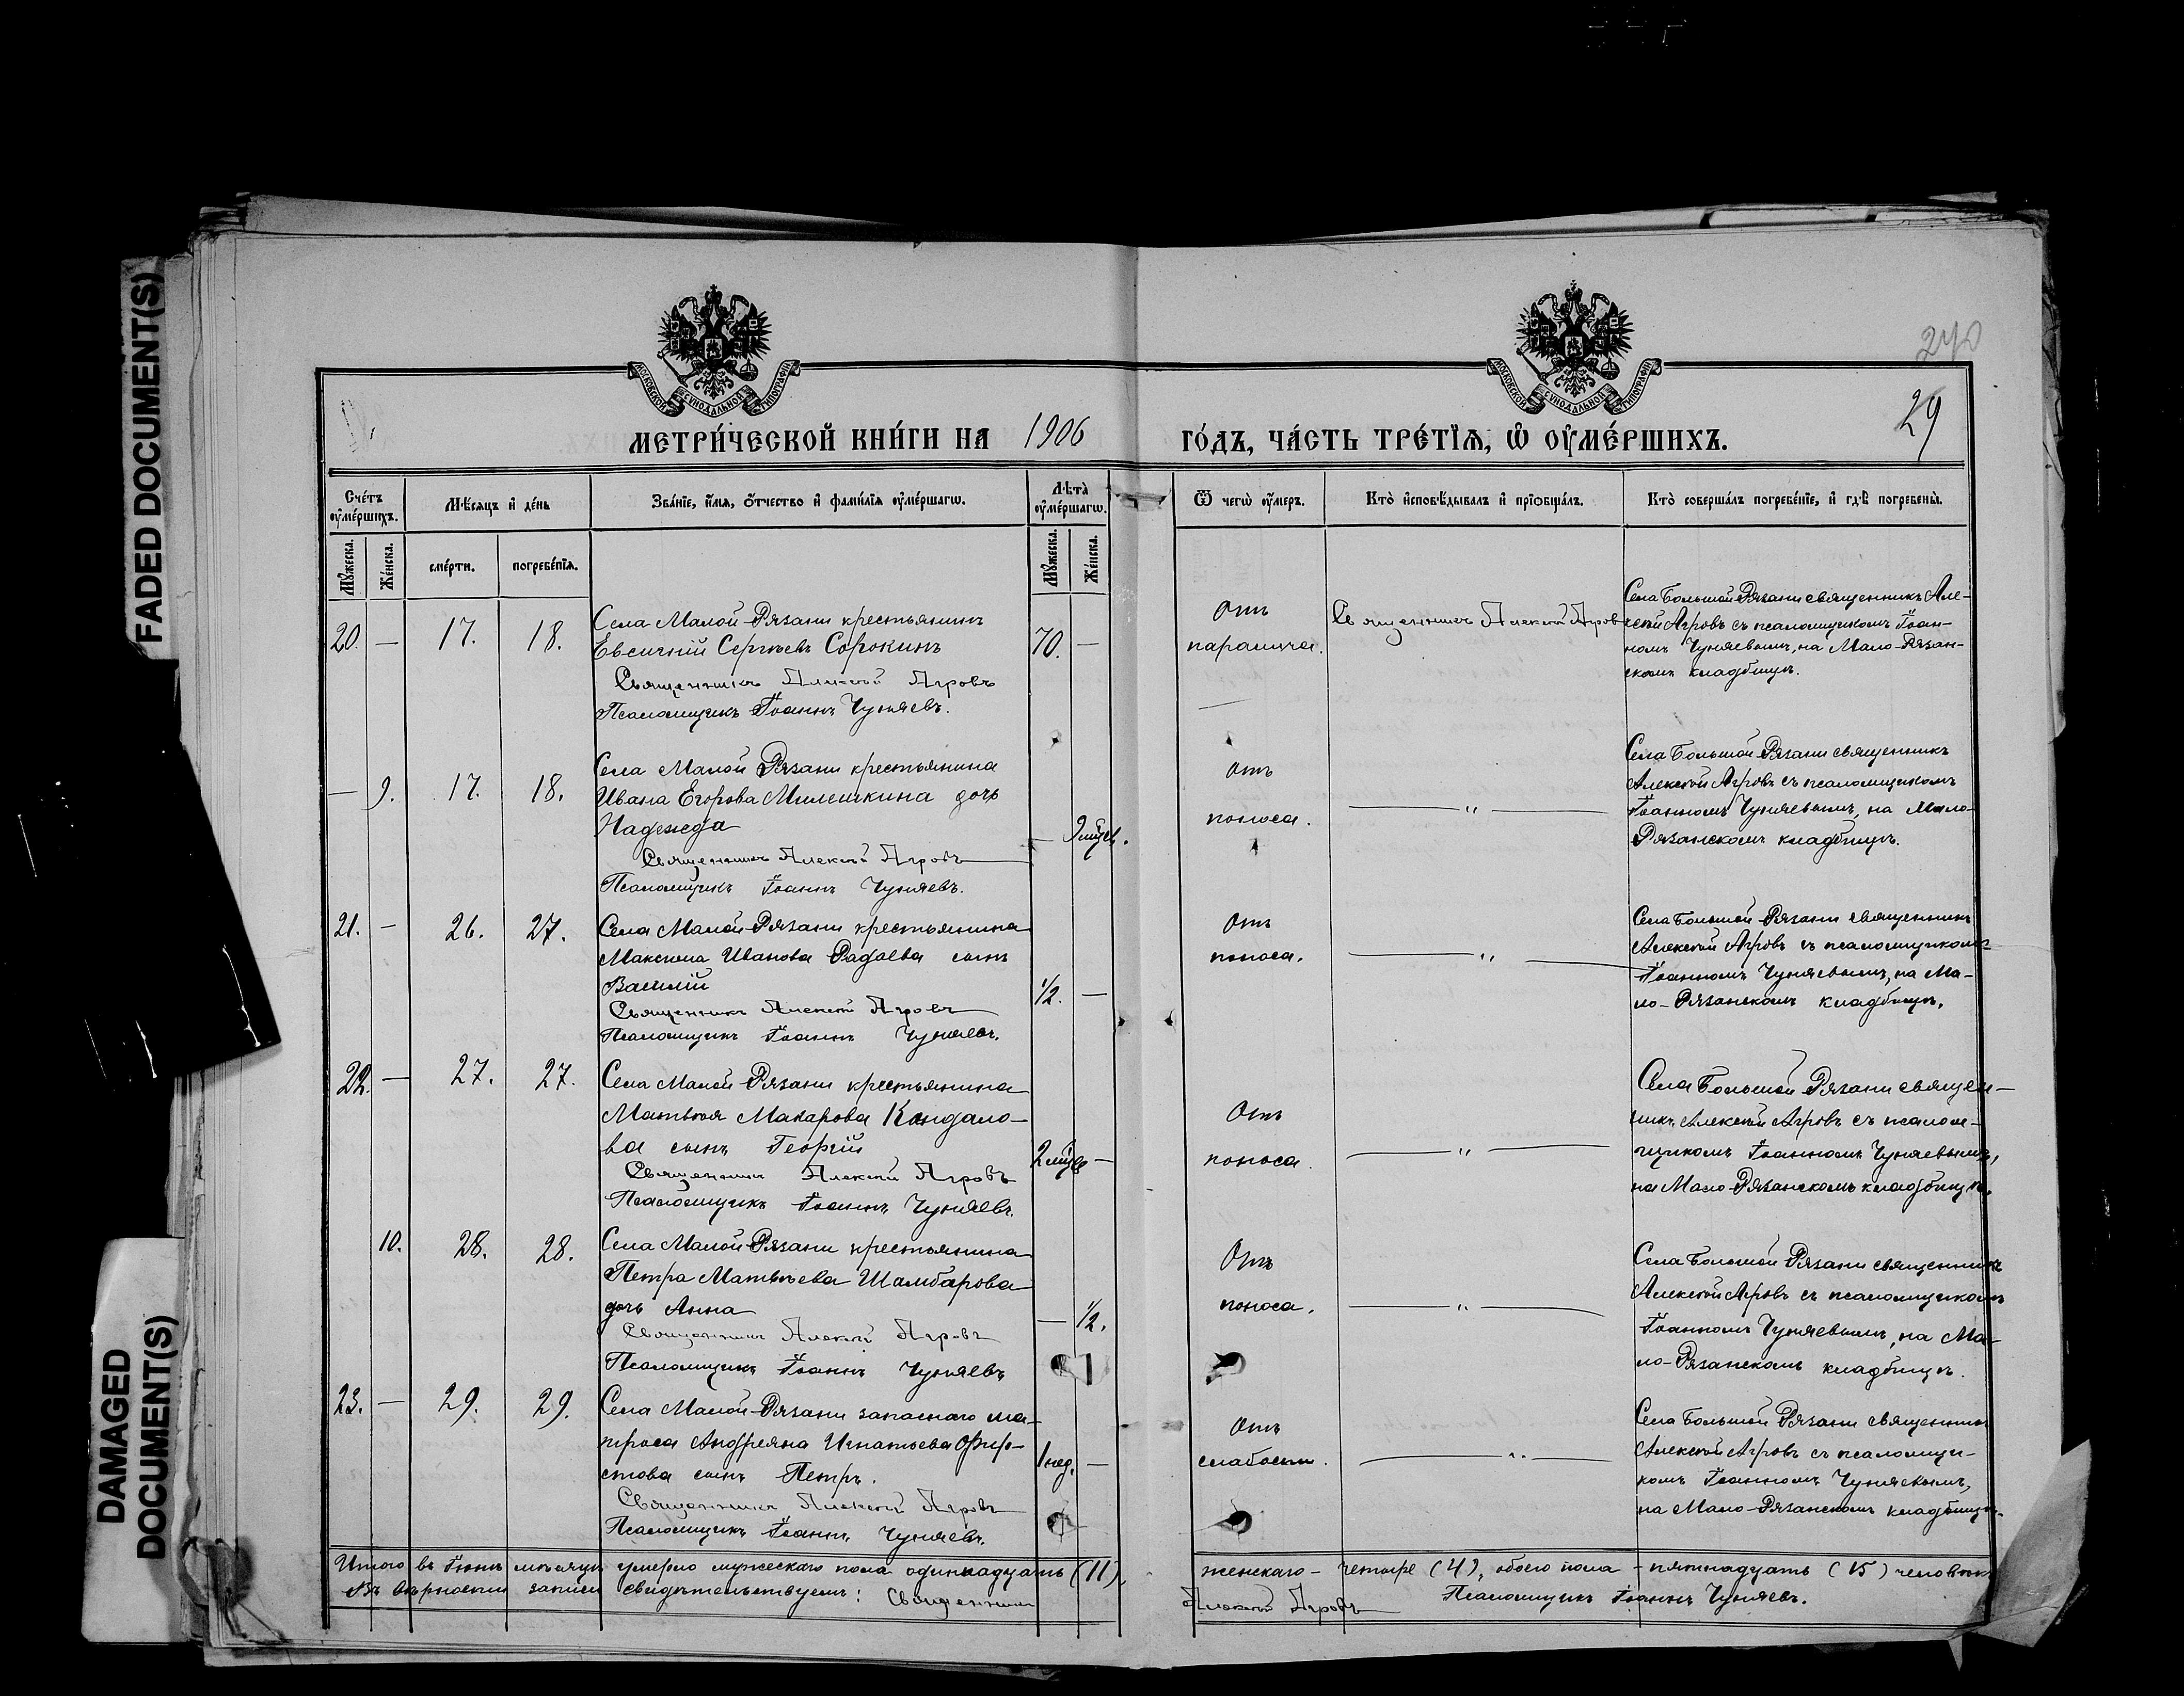 FADED DOCUMENT(S)
DAMAGED
DOCUMENT(S)
240
29
МОСКОВСКОЙ СѴНОДАЛЬНОЙ ТИПОГРАФІИ
МОСКОВСКОЙ СѴНОДАЛЬНОЙ ТИПОГРАФІИ
МЕТРИ́ЧЕСКОЙ КНИ́ГИ НА 1906 ГО́ДЪ, ЧА́СТЬ ТРЕ́ТІѦ, Ѡ ОУМЕ́РШИХЪ.
Сче́тъ оуме́ршихъ.
Мѣ́сяцъ и де́нь
Зва́ніе, и́мя, о́тчество и фами́лія оуме́ршагѡ.
Лѣта̀ оуме́ршагѡ.
Ѿ чегѡ̀ оу́меръ.
Кто̀ исповѣ́дывалъ и пріѻбща́лъ.
Кто̀ соверша́лъ погребе́ніе, и гдѣ̀ погребены̀.
Му́жеска.
Же́нска.
сме́рти.
погребе́нія.
Му́жеска.
Же́нска.
20. — 17. 18.
Села Малой-Рязани крестьянинъ
Евсигній Сергѣевъ Сорокинъ
Священникъ Алексѣй Агровъ
Псаломщикъ Іоаннъ Чуняевъ.
70. —
Отъ
паралича.
Священникъ Алексѣй Агровъ
Села Большой Рязани священникъ Але-
ксѣй Агровъ съ псаломщикомъ Іоан-
номъ Чуняевымъ, на Мало-Рязан-
скомъ кладбищѣ.
— 9. 17. 18.
Села Малой Рязани крестьянина
Ивана Егорова Милешкина дочь
Надежда
Священникъ Алексѣй Агровъ
Псаломщикъ Іоаннъ Чуняевъ.
— 9 мѣсе.
Отъ
поноса.
— „ —
Села Большой Рязани священникъ
Алексѣй Агровъ съ псаломщикомъ
Іоанномъ Чуняевымъ, на Мало-
Рязанскомъ кладбищѣ.
21. — 26. 27.
Села Малой-Рязани крестьянина
Максима Иванова Радаева сынъ
Василій
Священникъ Алексѣй Агровъ
Псаломщикъ Іоаннъ Чуняевъ.
1/2. —
Отъ
поноса.
— „ —
Села Большой-Рязани священникъ
Алексѣй Агровъ съ псаломщикомъ
Іоанномъ Чуняевымъ, на Ма-
ло-Рязанскомъ кладбищѣ.
22. — 27. 27.
Села Малой-Рязани крестьянина
Матвѣя Макарова Кандало-
ва сынъ Георгій
Священникъ Алексѣй Агровъ
Псаломщикъ Іоаннъ Чуняевъ.
2 мѣсе —
Отъ
поноса.
— „ —
Села Большой Рязани священ-
никъ Алексѣй Агровъ съ псалом-
щикомъ Іоанномъ Чуняевымъ,
на Мало-Рязанскомъ кладбищѣ.
10. 28. 28.
Села Малой-Рязани крестьянина
Петра Матвѣева Шамбарова
дочь Анна
Священникъ Алексѣй Агровъ
Псаломщикъ Іоаннъ Чуняевъ
— 1/2.
Отъ
поноса.
— „ —
Села Большой Рязани священникъ
Алексѣй Агровъ съ псаломщикомъ
Іоанномъ Чуняевымъ, на Ма-
ло-Рязанскомъ кладбищѣ.
23. — 29. 29.
Села Малой-Рязани запаснаго ма-
троса Андреяна Игнатьева Фир-
стова сынъ Петръ.
Священникъ Алексѣй Агровъ
Псаломщикъ Іоаннъ Чуняевъ.
1 нед. —
Отъ
слабости.
— „ —
Села Большой Рязани священникъ
Алексѣй Агровъ съ псаломщи-
комъ Іоанномъ Чуняевымъ,
на Мало-Рязанскомъ кладбищѣ.
Итого въ Іюнѣ мѣсяцѣ умерло мужескаго пола одиннадцать (11), женскаго - четыре (4), обоего пола - пятнадцать (15) человѣкъ
Въ вѣрности записи свидѣтельствуемъ: Священникъ Алексѣй Агровъ Псаломщикъ Іоаннъ Чуняевъ.